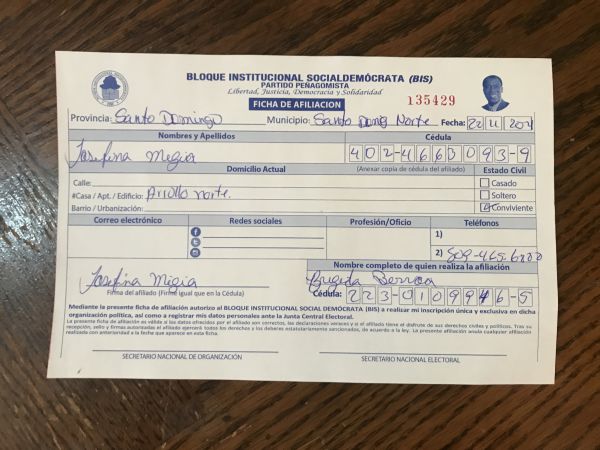 BLOQUE INSTITUCIONAL SOCIALDEMÓCRATA (BIS)
PARTIDO PEÑAGOMISTA
Libertad, Justicia, Democracia y Solidaridad
FICHA DE AFILIACION
135429
Provincia: Santo Domingo Municipio: Santo Dong Norte Fecha: 22
Nombres y Apellidos Cédula
Josefina Megia 402-4663093-9
Domicilio Actual (Anexar copia de cédula del afiliado) Estado Civil
Calle: Casado
#Casa / Apt. / Edificio: Arollo norte. Soltero
Barrio / Urbanización: Conviviente
Correo electrónico Redes sociales Profesión/Oficio Teléfonos
1)
2) 809-465-6220
Nombre completo de quien realiza la afiliación
Josefina Migia Brigida
Firma del afiliado (Firme igual que en la Cédula) Cédula: 223-0109946-5
Mediante la presente ficha de afiliación autorizo al BLOQUE INSTITUCIONAL SOCIAL DEMÓCRATA (BIS) a realizar mi inscripción única y exclusiva en dicha
organización política, así como a registrar mis datos personales ante la Junta Central Electoral.
La presente ficha de afiliación es válida y los datos ofrecidos por el afiliado son correctos, las declaraciones veraces y si el afiliado tiene el disfrute de sus derechos civiles y políticos. Tras su
recepción, sello y firmas autorizadas el afiliado ejercerá todos los derechos y los deberes estatutariamente sancionados, de acuerdo a la ley. La presente afiliación anula cualquier afiliación
realizada con anterioridad a la fecha que aparece en esta ficha.
SECRETARIO NACIONAL DE ORGANIZACIÓN SECRETARIO NACIONAL ELECTORAL